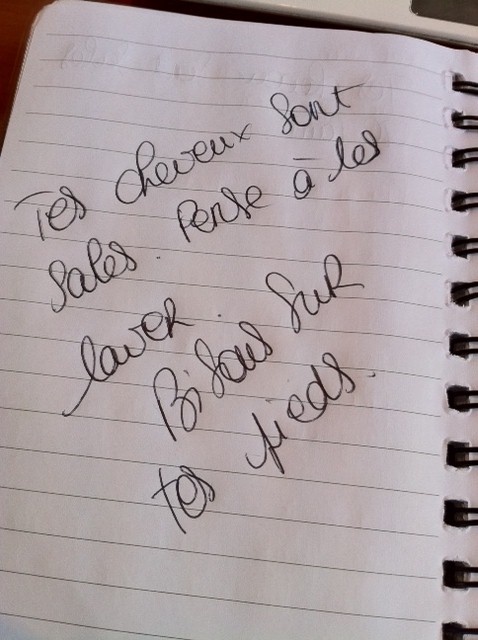 Tes cheveux sont
sales. Pense à les
laver.
Bisous sur
tes pieds.